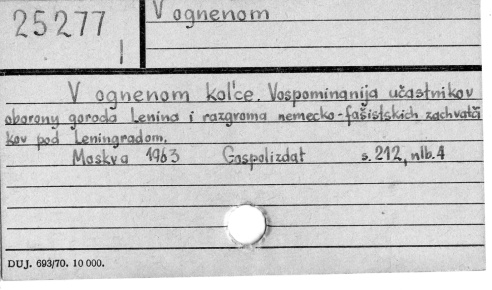 25277
I
V ognenom
V ognenom kol'ce. Vospominanija učastnikov
oborony goroda Lenina i razgroma nemecko-fašistskich zachvatči
kov pod Leningradom.
Moskva 1963 Gospolizdat s. 212, nlb. 4
DUJ. 693/70. 10 000.